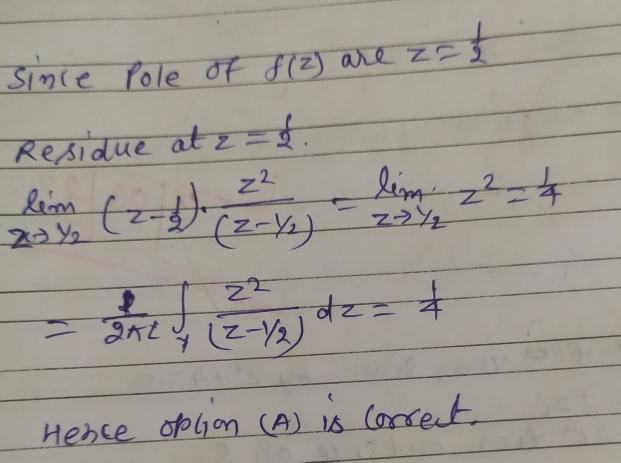 Since Pole of f(z) are z = 1/2
Residue at z = 1/2.
lim z→1/2 (z-1/2). z²/(z-1/2) = lim z→1/2 z² = 1/4
= 1/2πi ∫γ z²/(z-1/2) dz = 1/4
Hence option (A) is correct.